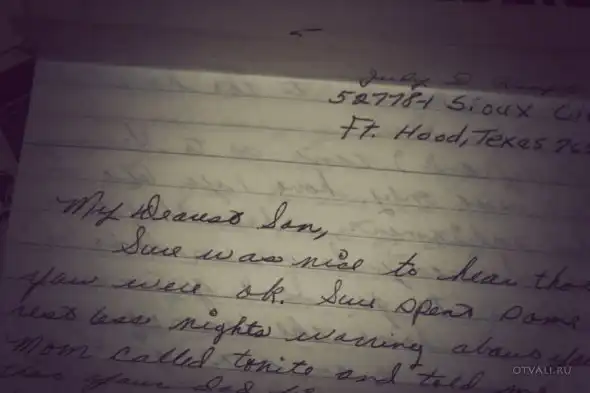 52778-1 Sioux
Ft. Hood, Texas 76
My Dearest Son,
Sure was nice to hear that
you were ok. Sure spent some
restless nights worring about you
Mom called tonite and told me
your dad
OTVALI.RU